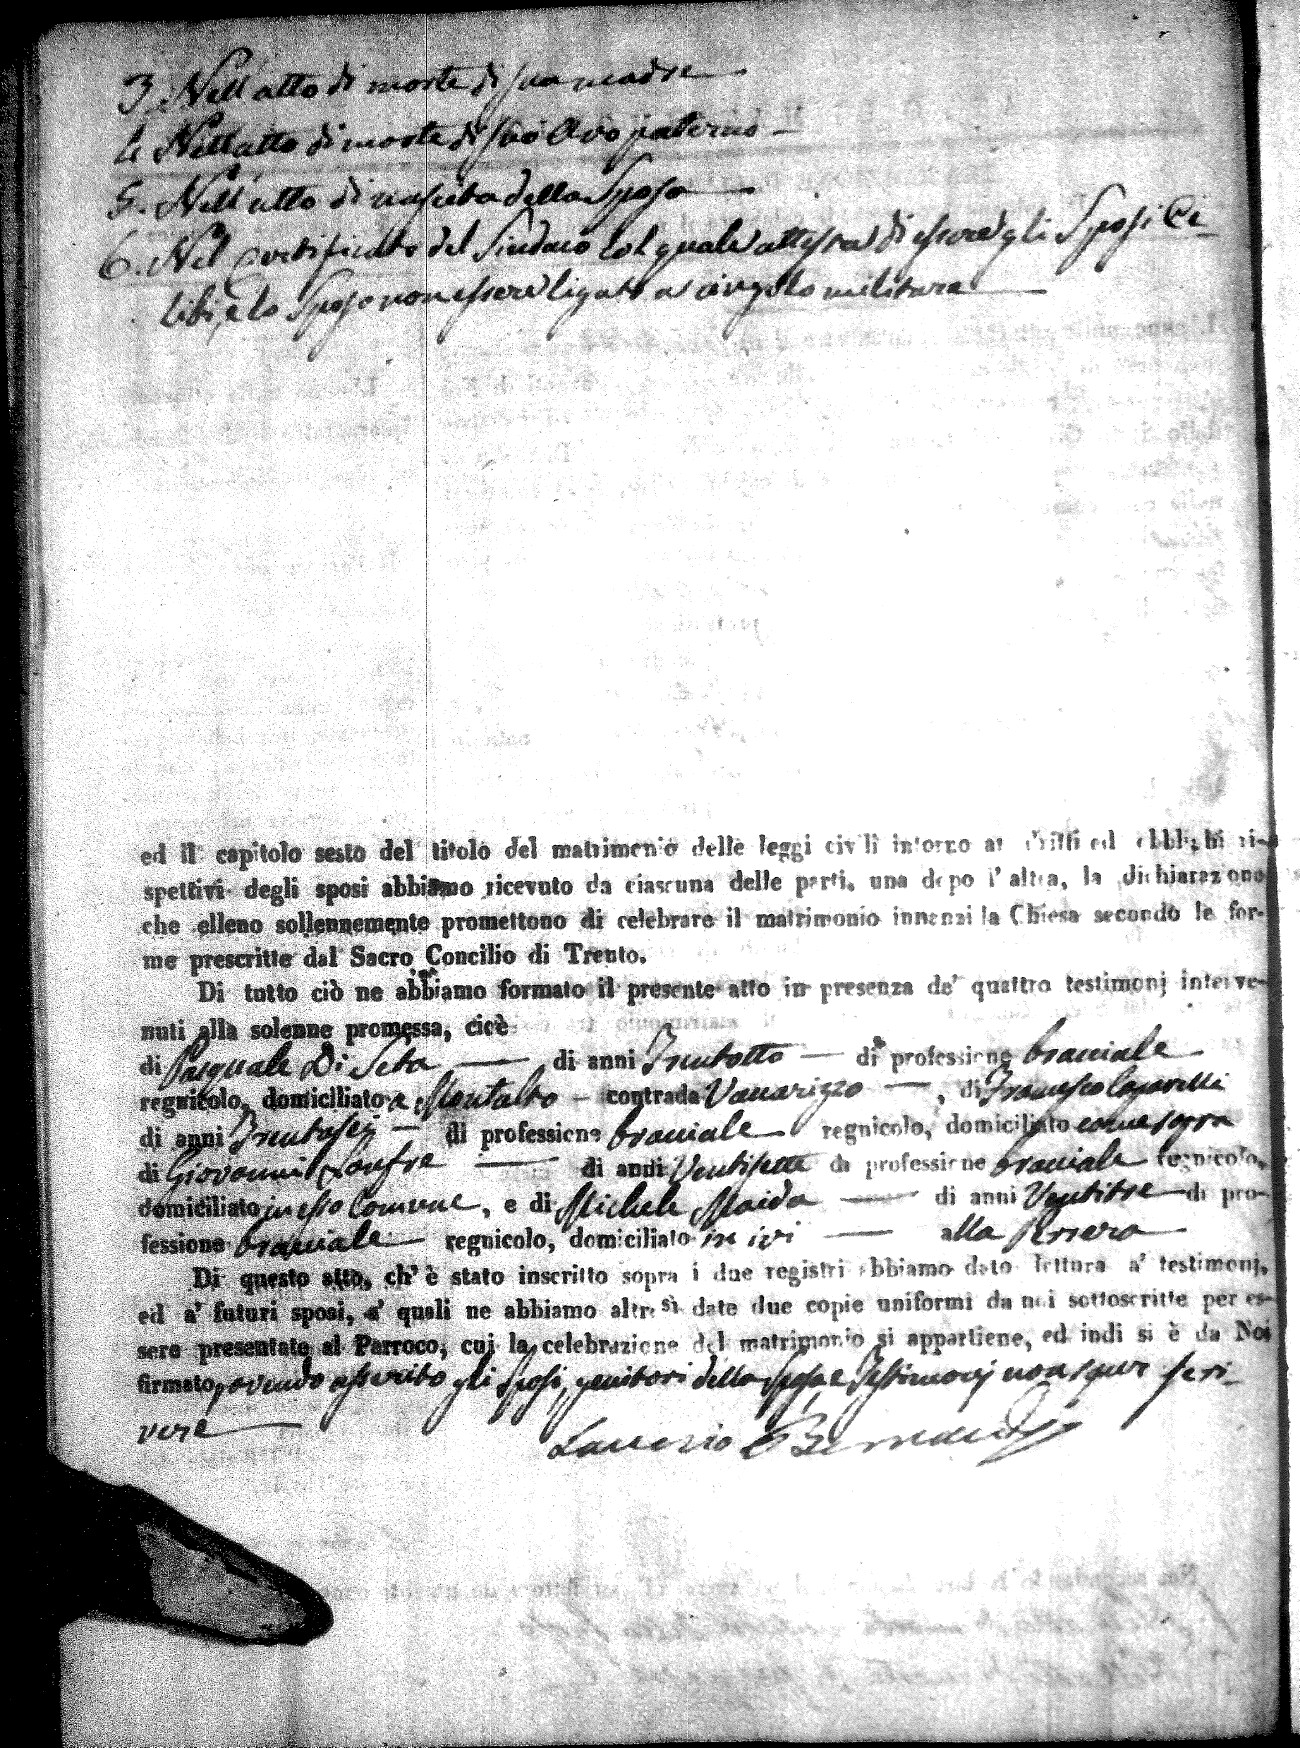 3. Nell'atto di morte di sua madre
4. Nell'atto di morte di suo Avo paterno
5. Nell'atto di nascita della Sposa
6. Nel Certificato del Sindaco col quale attesta di essere gli Sposi Ce
libi, e lo Sposo non essere ligato a cingolo militare
ed il capitolo sesto del titolo del matrimonio delle leggi civili intorno ai dritti ed obblighi ri-
spettivi degli sposi abbiamo ricevuto da ciascuna delle parti, una dopo l'altra, la dichiarazione
che elleno sollennemente promettono di celebrare il matrimonio innanzi la Chiesa secondo le for-
me prescritte dal Sacro Concilio di Trento.
Di tutto ciò ne abbiamo formato il presente atto in presenza de' quattro testimonj interve-
nuti alla solenne promessa, cioè
di Pasquale Di Seta di anni Trentotto di professione bracciale
regnicolo, domiciliato a Montalto contrada Vaccarizzo, di Francesco
di anni Trentasei di professione bracciale regnicolo, domiciliato come sopra
di Giovanni di anni Ventisette di professione bracciale regnicolo,
domiciliato in esso Comune, e di Michele Maida di anni Ventitre di pro-
fessione bracciale regnicolo, domiciliato in ivi alla
Di questo atto, ch' è stato inscritto sopra i due registri abbiamo dato lettura a' testimonj,
ed a' futuri sposi, a' quali ne abbiamo altresì date due copie uniformi da noi sottoscritte per es-
sere presentate al Parroco, cui la celebrazione del matrimonio si appartiene, ed indi si è da Noi
firmato, avendo asserito gli Sposi, genitori della Sposa e Testimonj non saper scri-
vere